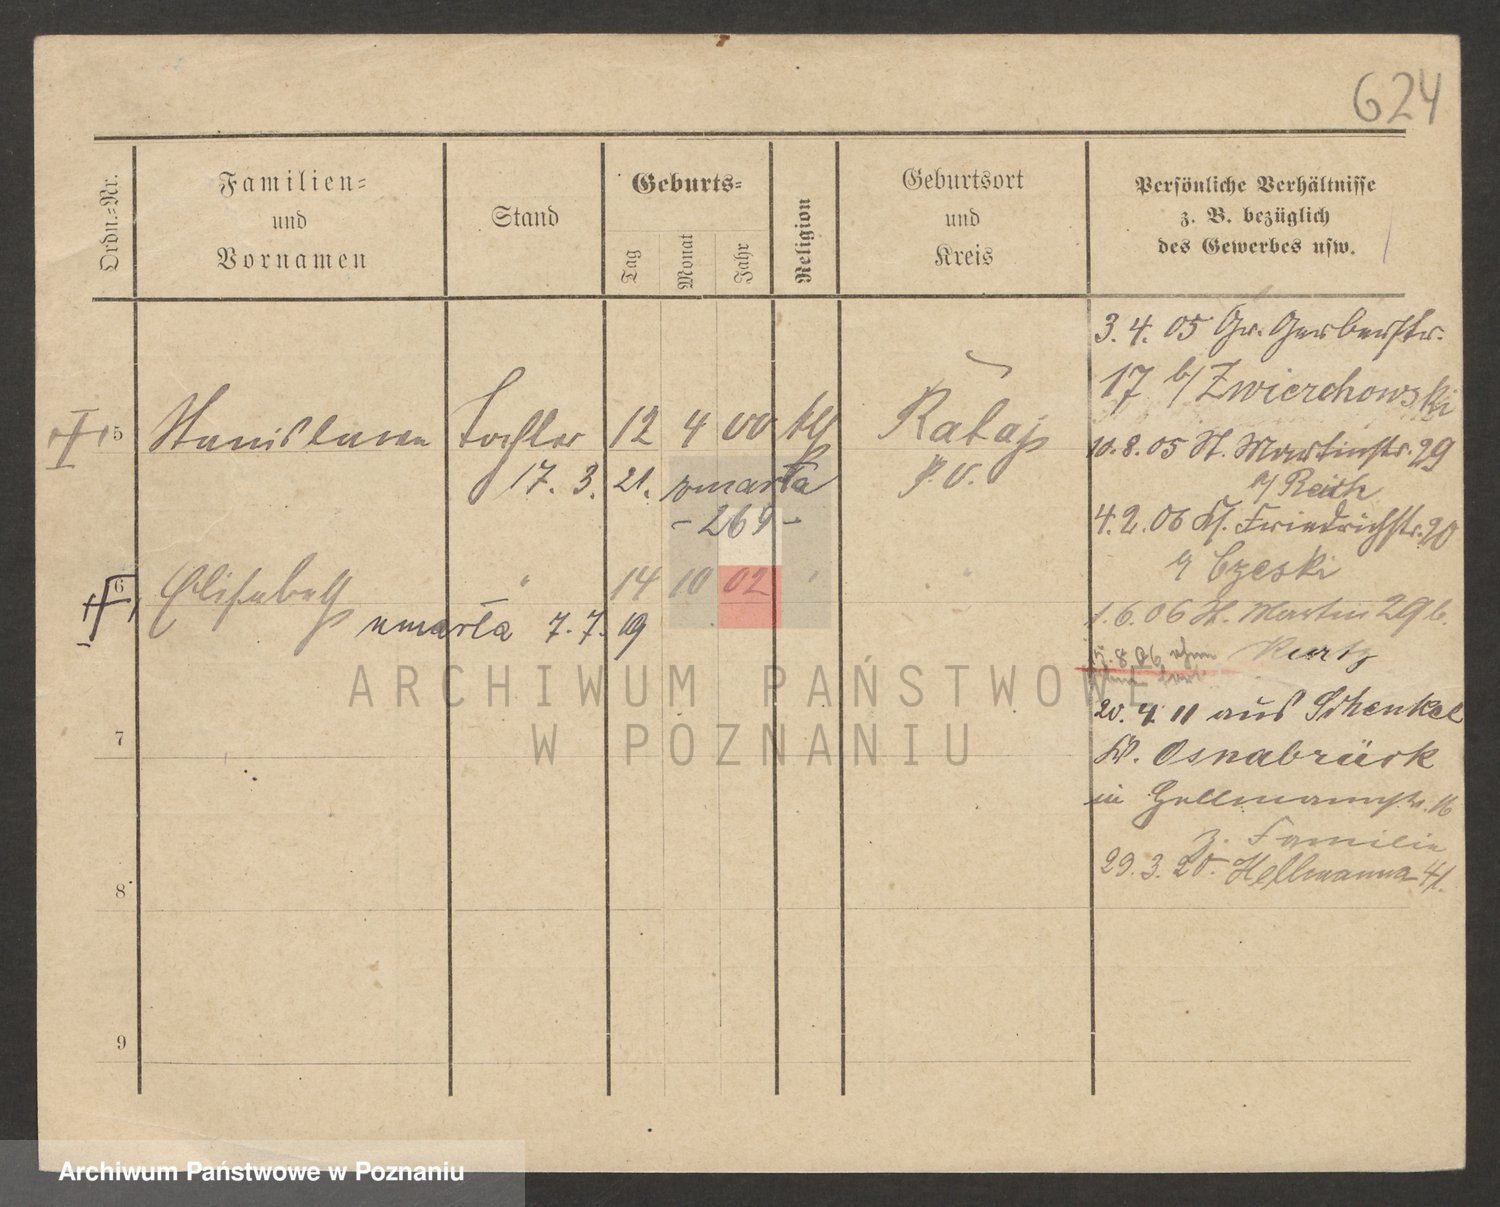 624
Ordn.-Nr.
Familien-
und
Vornamen
Stand
Geburts-
Tag
Monat
Jahr
Religion
Geburtsort
und
Kreis
Persönliche Verhältnisse
z. B. bezüglich
des Gewerbes usw.
3. 4. 05 Gr. Gerberstr.
17 b/ Zwierchowski
5 Stanislawa Tochter 12 4 00 kth Rataj
10. 8. 05 St. Martinstr. 29
17. 3. 21. zmarła P. O.
b/ Reich
- 269 -
4. 2. 06 Kl. Friedrichstr. 20
b/ Czeski
6 Elisabeth " 14 10 02 " "
umarła 7. 7. 19
1. 6. 06 St. Martin 29 b.
8. 06 ohne
Kurtz
20. 4. 11 aus Schenkel
Kr. Osnabrück
in Hellmannstr. 16
z. Familie
29. 3. 20. Hellmanna 41.
7
8
9
ARCHIWUM PAŃSTWOWE
W POZNANIU
Archiwum Państwowe w Poznaniu